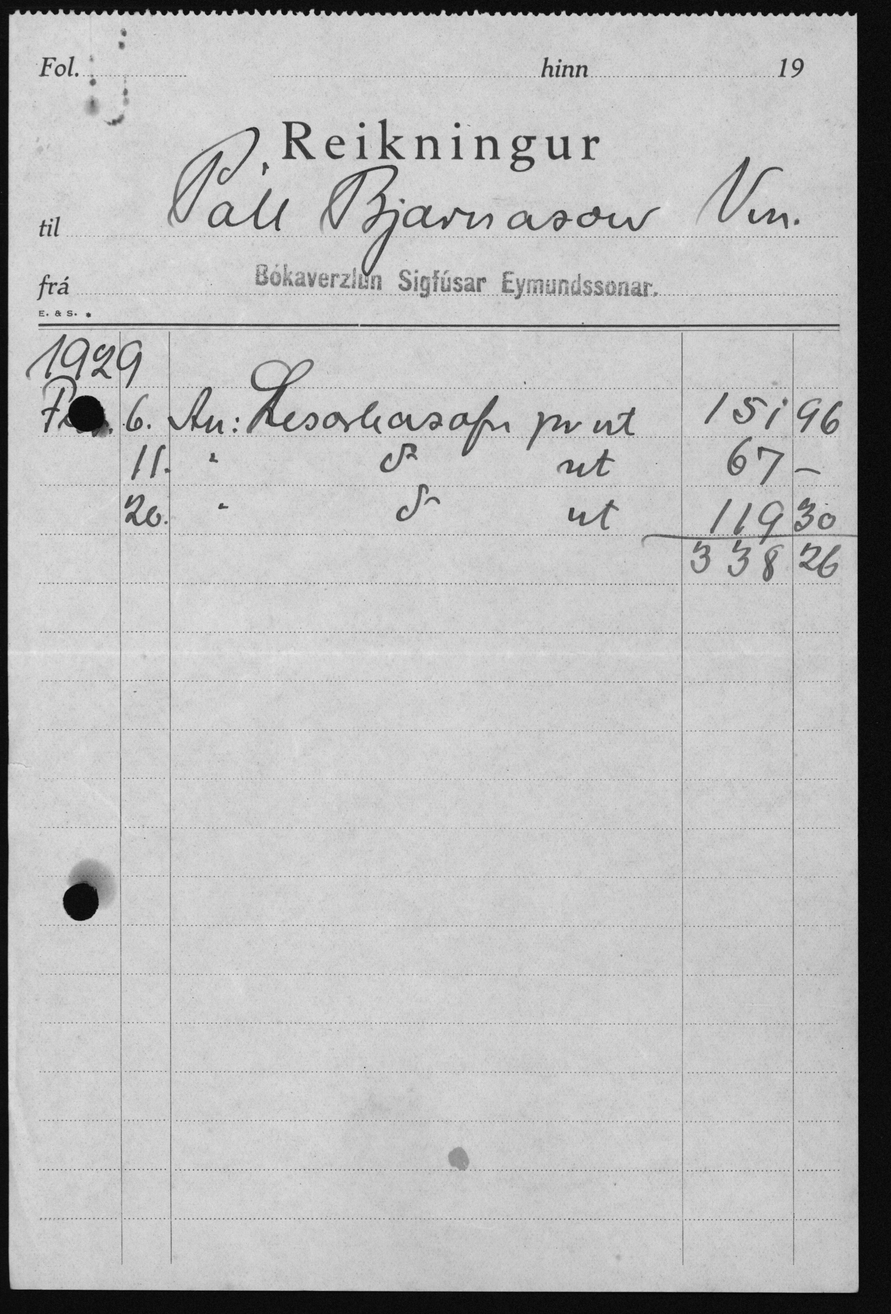 Fol. hinn 19
Reikningur
til Páll Bjarnason Vm.
frá Bókaverzlun Sigfúsar Eymundssonar.
E. & S.
1929
6. An: Lesarkasafn pr nt 151 96
11. " do nt 67 –
20. " do nt 119 30
338 26